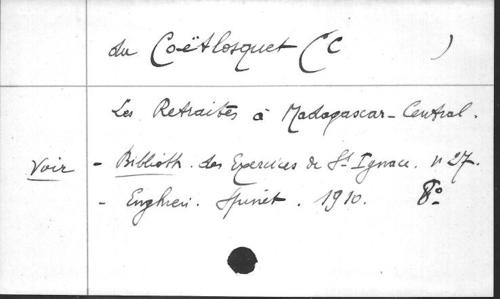 du Coëtlosquet (C )
Les Retraites à Madagascar-Central.
Voir - Biblioth. des Exercices de St Ignace. n 27.
- Enghien. Spinet. 1910. 8º